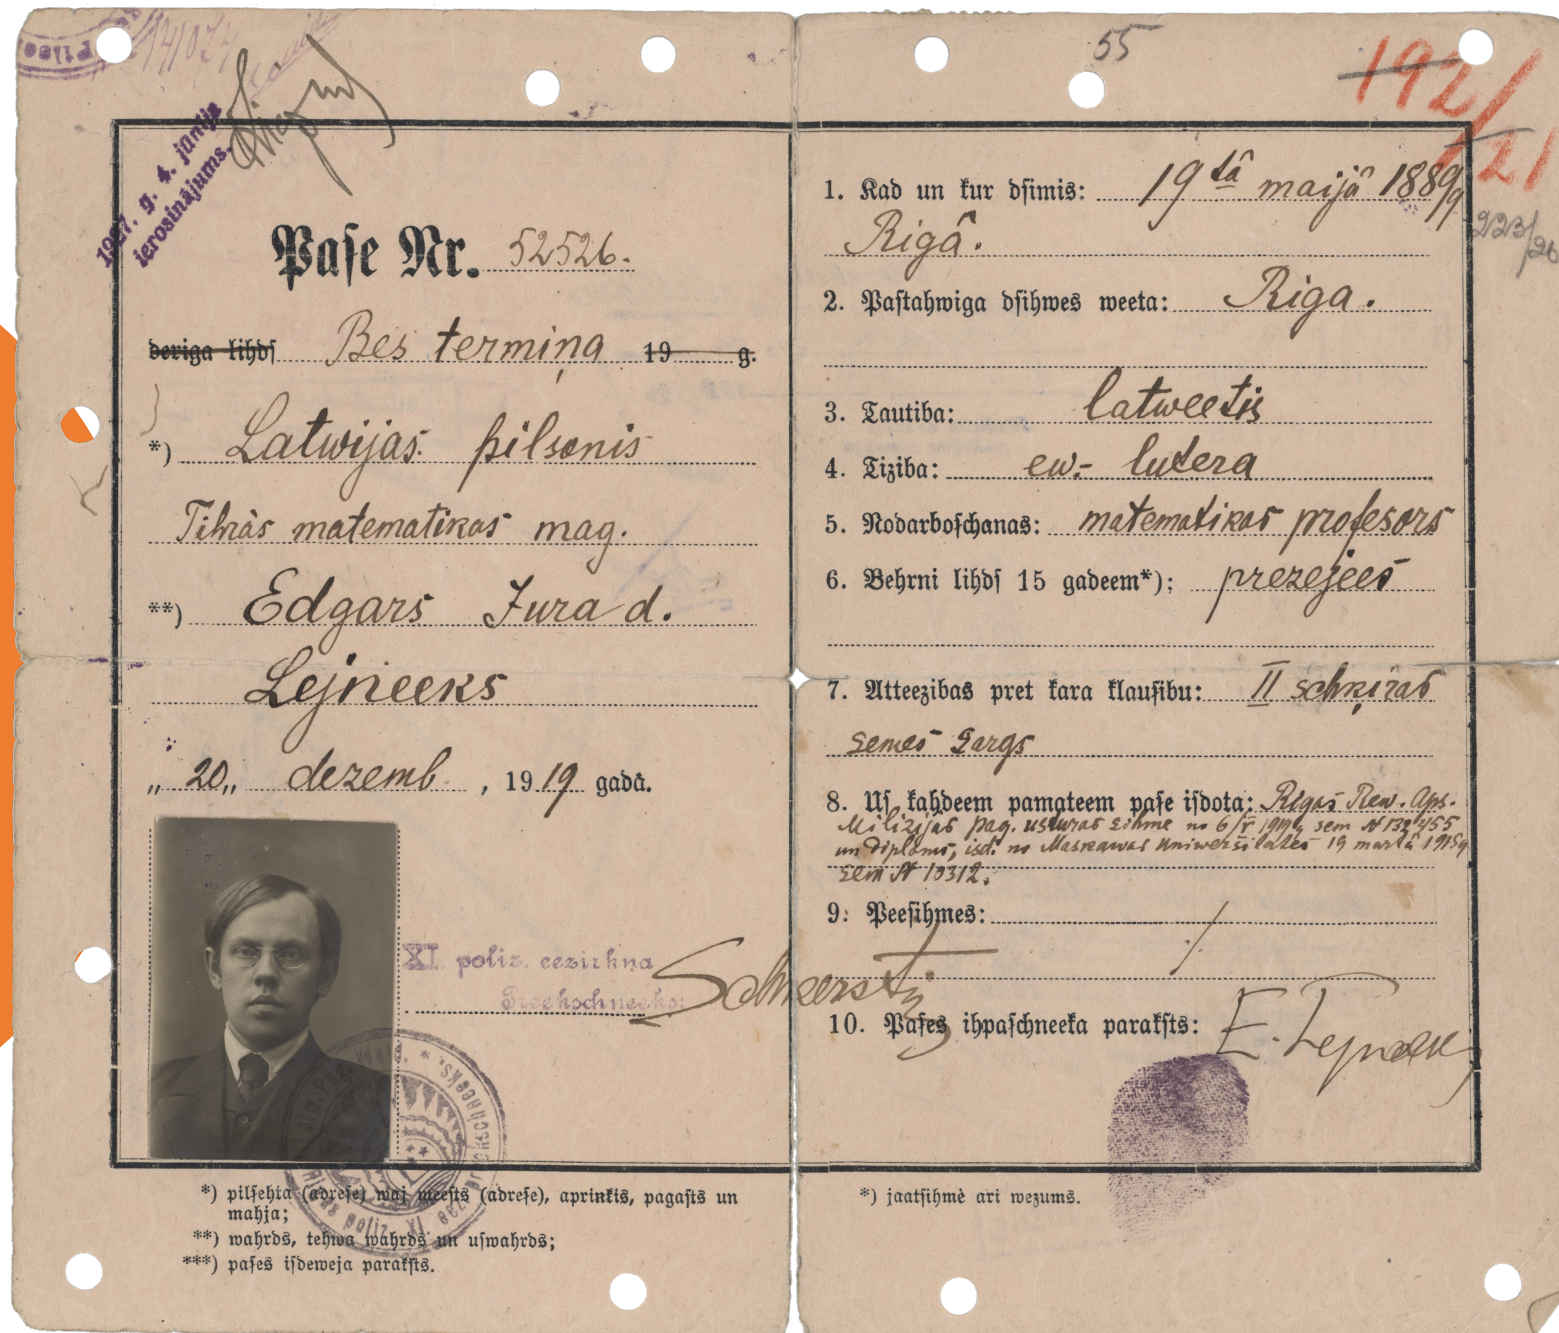 1927. g. 4. jūnija
ierosinājums.
Paſe Nr. 52526.
deriga lihdſ Bes termiņa 19 g.
*) Latwijas pilsonis
Tihràs matematikas mag.
**) Edgars Jura d.
Lejneeks
„ 20 „ dezemb , 1919 gadâ.
XI poliz. eezirkņa
Preekschneeks:
*) pilſehta (adreſe) waj meests (adreſe), aprinkis, pagaſts un
mahja;
**) wahrds, tehwa wahrds un uſwahrds;
***) paſes iſdeweja parakſts.
55
192/
121
223/26
1. Kad un kur dſimis: 19tâ maijâ 1889g
Rigâ.
2. Paſtahwiga dſihwes weeta: Riga.
3. Tautiba: latweetis
4. Tiziba: ew.- lutera
5. Nodarboſchanas: matematikas profesors
6. Behrni lihdſ 15 gadeem*): prezejees
7. Atteezibas pret kara klauſibu: II schķiras
semes sargs
8. Uſ kahdeem pamateem paſe iſdota: Rigas Rew. Aps.
Milizijas pag. usturas sihme no 6/V 1919g sem № 132455
un diploms, isd. no Maskawas Uniwersitates 19 martâ 1915g
sem № 10312.
9. Peeſihmes:
10. Paſes ihpaſchneeka parakſts: E. Lejneeks
*) jaatſihmè ari wezums.